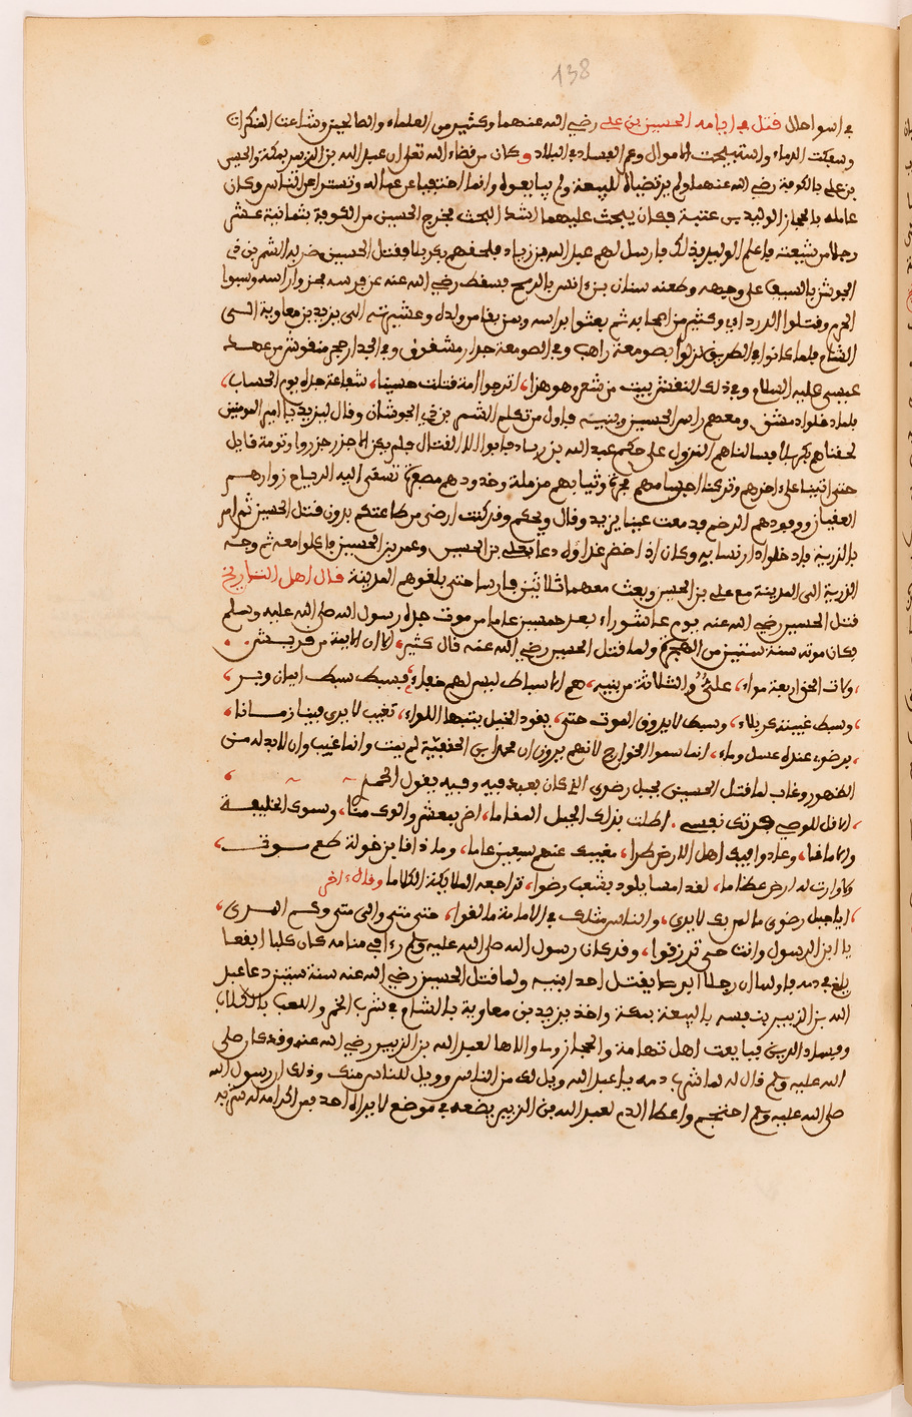 138
في اسوا حلال قتل في ايامه الحسين بن علي رضي الله عنهما وكثير من العلماء والصالحين وشاعت المنكرات
وسفكت الدماء واستبيحت الاموال وعم الفساد في البلاد وكان من قضاء الله تعلى ان عبد الله بن الزبير بمكة والحسين
بن علي بالكوفة رضي الله عنهما ولم يرتضياه للبيعة ولم يبايعوه وانما اختفيا عن عماله وتسترا عن الناس وكان
عامله بالحجاز الوليد بن عتبة فكان يبحث عليهما اشد البحث فخرج الحسين من الكوفة بثمانية عشر
رجلا من شيعته فاعلم الوليد بذلك فارسل لهم عبد الله بن زياد فلحقهم بكربلا فقتل الحسين ضربه الشمر بن ذي
الجوشن بالسيف على وجهه وطعنه سنان بن انس بالرمح فسقط رضي الله عنه عن فرسه فحزوا راسه وسبوا
الحرم وقتلوا الذراري وكثير من اصحابه ثم بعثوا براسه وبمن بقا من ولده وعشيرته الى يزيد بن معاوية الى
الشام فلما كانوا في الطريق نزلوا بصومعة راهب وفي الصومعة جدار مشقوق وفي الجدار حجر منقوش من عهد
عيسى عليه السلام وفي ذلك النقش بيت من شعر وهو هذا، اترجوا امة قتلت حسينا، شفاعة جده يوم الحساب،
فلما دخلوا دمشق ومعهم راس الحسين وبنيه فاول من تكلم الشمر بن ذي الجوشان وقال ليزيد يا امير المومنين
لحقناهم بكربلا فسالناهم النزول على حكم عبد الله بن زياد فابوا الا القتال فلم يكن الا جزر جزروا ونومة قايل
حتى اتينا على اخرهم وتركنا اجسامهم مجردة وثيابهم مزملة وخدودهم معفرة تسفى اليه الرياح زوارهم
العقبان ووفودهم الرخم فدمعت عينا يزيد وقال ويحكم وقد كنت ارضى من طاعتكم بدون قتل الحسين ثم امر
بالذرية فادخلوا دار نسايه وكان اذا حضر غداؤه دعا بعلي بن الحسين وعمر بن الحسين فاكلوا معه ثم وجه
الذرية الى المدينة مع علي بن الحسين وبعث معهما ثلاثين فارسا حتى بلغوهم المدينة قال اهل التاريخ
قتل الحسين رضي الله عنه يوم عاشوراء بعد خمسين عاما من موت جده رسول الله صلى الله عليه وسلم
فكان موته سنة ستين من الهجرة ولما قتل الحسين رضي الله عنه قال كثير، الا ان الايمة من قريش
، ولات الحق اربعة سواء، علي والثلاثة من بنيه، هم الاسباط ليس لهم خفاء، فسبط سبط ايمان وبر،
، وسبط غيبته كربلاء، وسبط لا يذوق الموت حتى، يقود الخيل يتبعها اللواء، تغيب لا يرى فينا زمانا،
، برضوى عنده عسل وماء، انما سموا الخوارج لانهم يرون ان محمد ابن الحنفية لم يمت وانما غيب وان لا بد له من
الظهور وغاب لما قتل الحسين بجبل رضوى الذي كان يعبد فيه وفيه يقول الحمير
، الا قل للوصي فدتك نفسي، اطلت بذلك الجبل المقاما، اضر بمعشر والوك منا، وسموك الخليفة
والاماما، وعادوا فيك اهل الارض طرا، مغيبك عنهم سبعين عاما، وما ذاق ابن خولة طعم موت،
ولا وارت له ارض عظاما، لقد امسا يلود بشعب رضوا، تراجعه الملايكة الكلاما وقال اخر
، ايا جبل رضوى ما لمن بك لا يرى، والناس مثلك في الامامة ما لقوا، حتى متى والى متى وكم المدى،
يا ابن الرسول وانت حي ترزقوا، وقد كان رسول الله صلى الله عليه وسلم رءا في منامه كان كلبا ابقعا
يلغ في دمه فاوله ان رجلا ابرصا يقتل احد ابنيه ولما قتل الحسين رضي الله عنه سنة ستين دعا عبد
الله بن الزبير بنفسه بالبيعة بمكة واخذ يزيد بن معاوية بالشام في شرب الخمر واللعب بالكلاب
وفساد الدين فبايعت اهل تهامة والحجاز وما والاها لعبد الله بن الزبير رضي الله عنه وقد كان صلى
الله عليه وسلم قال له لما شرب دمه يا عبد الله ويل لك من الناس وويل للناس منك وذلك ان رسول الله
صلى الله عليه وسلم احتجم واعطا الدم لعبد الله بن الزبير يضعه في موضع لا يراه احد فمن اكرامه له شربه